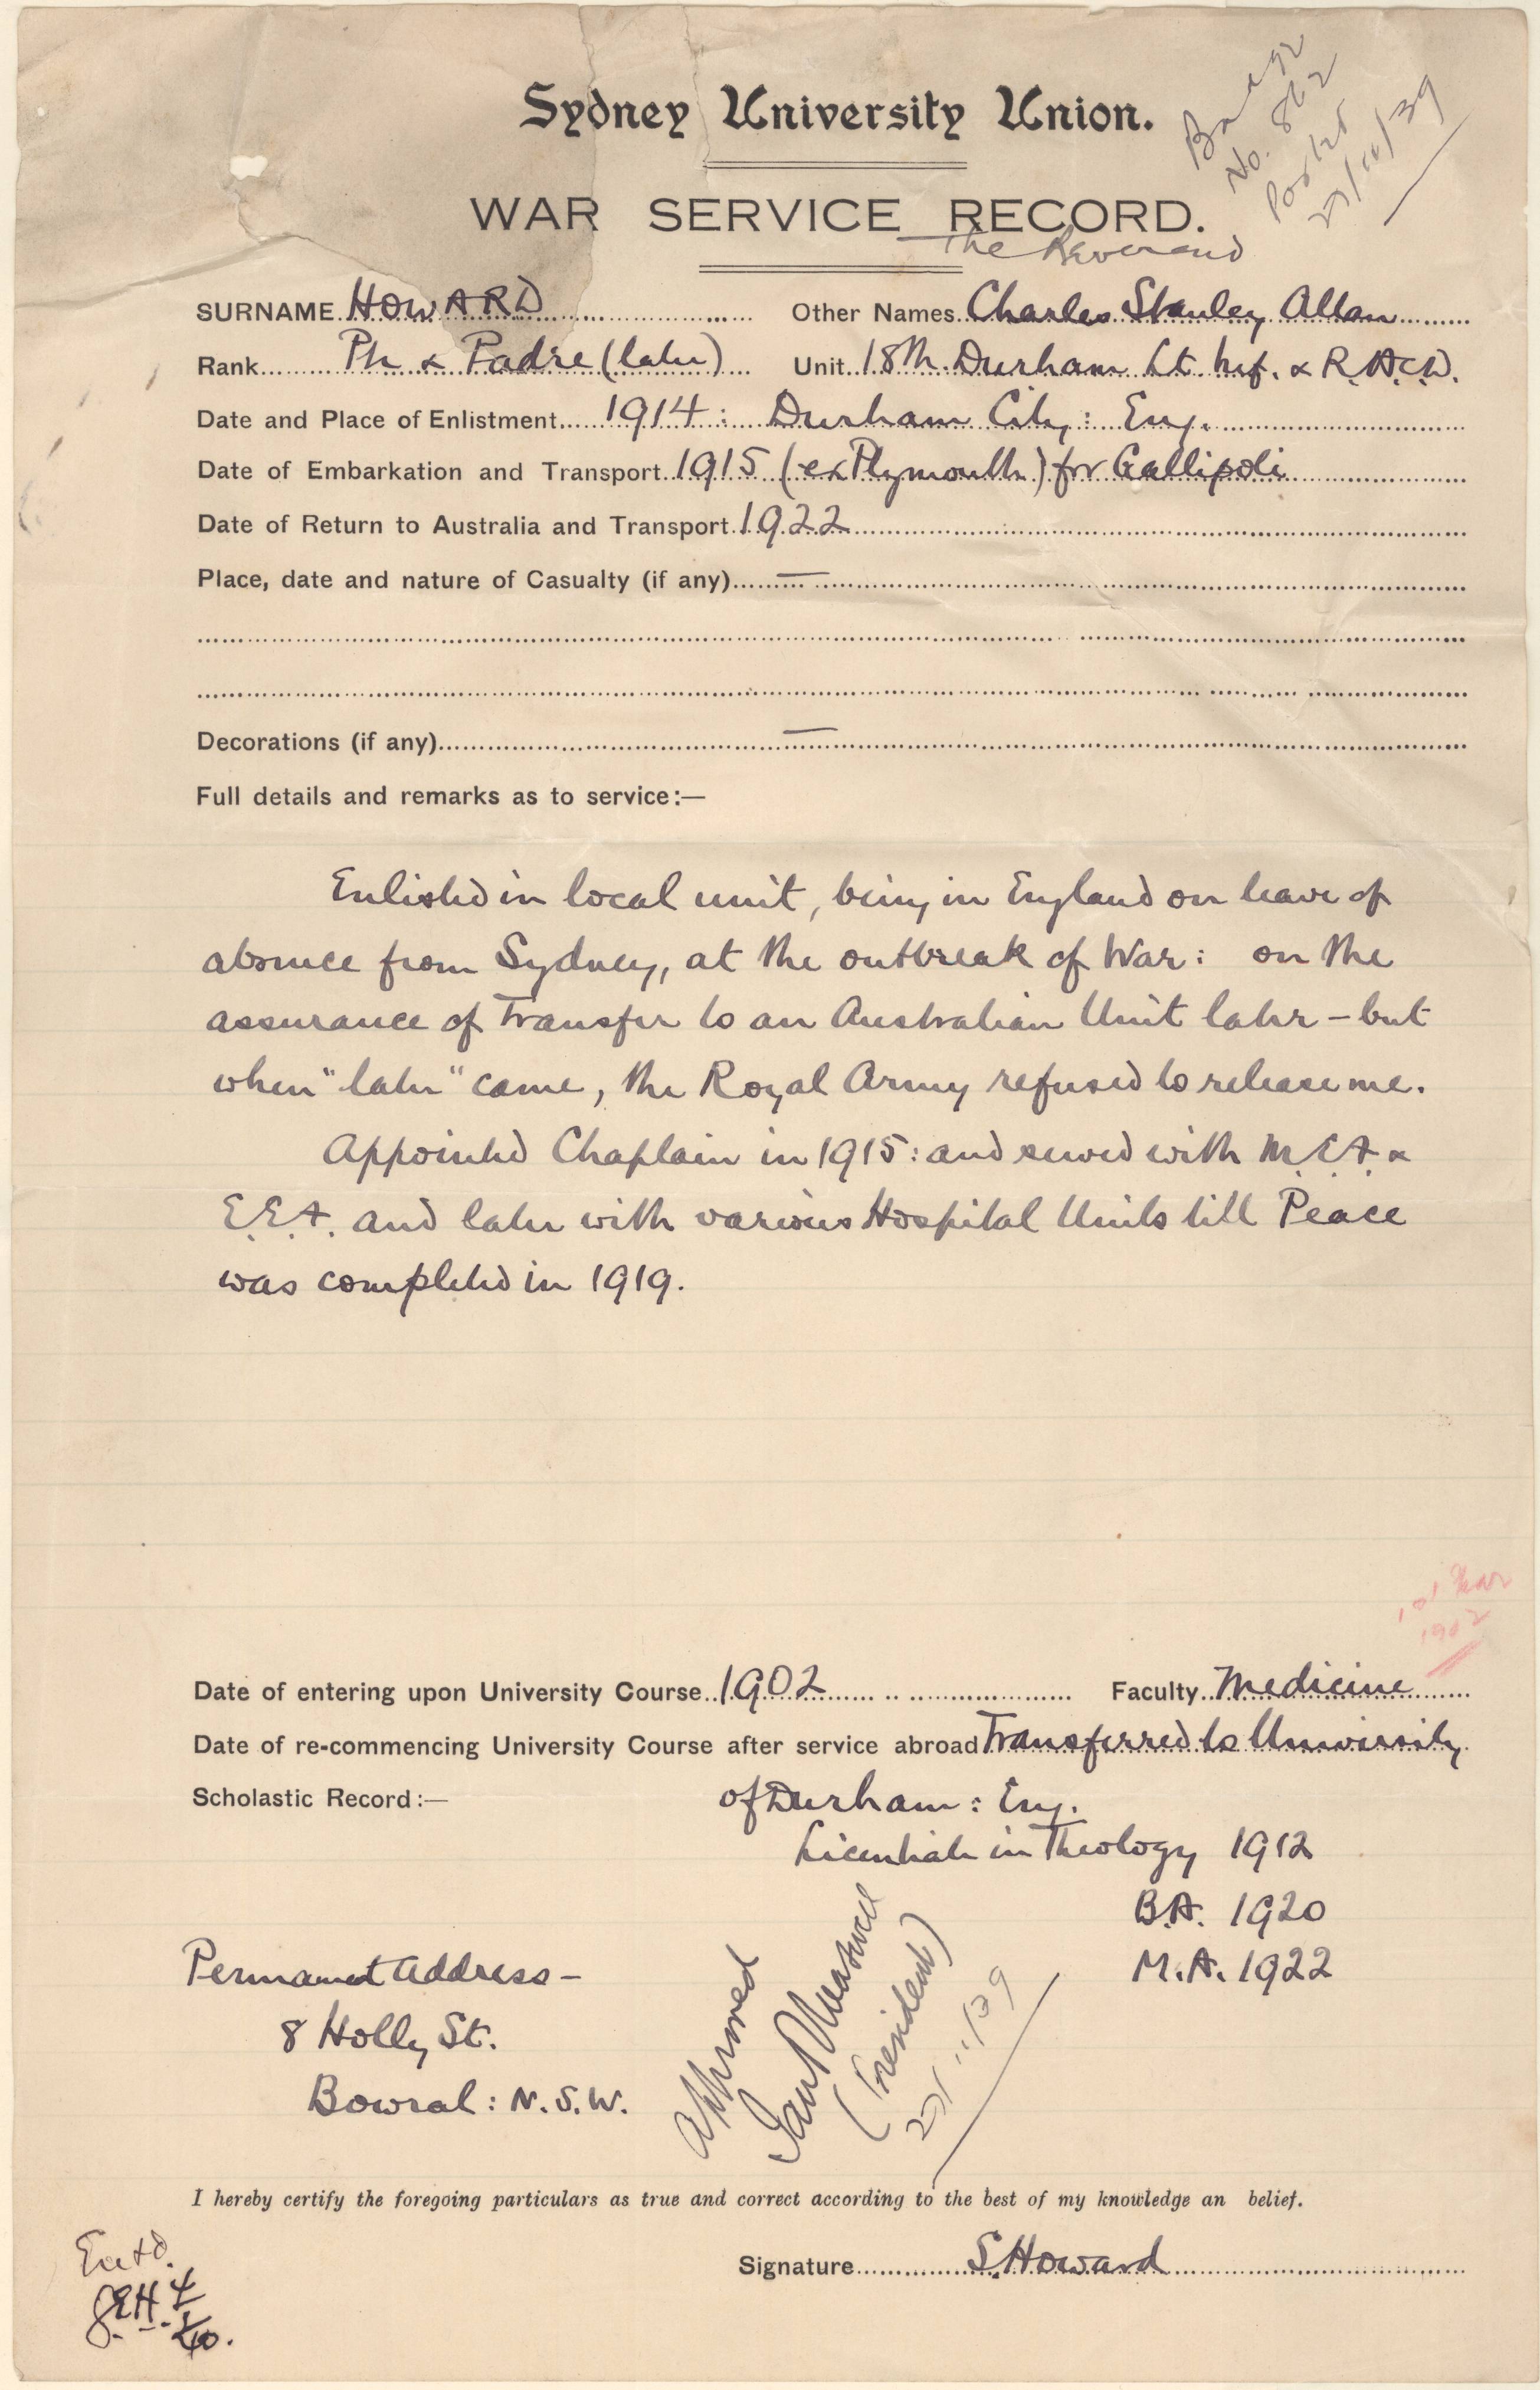 Badge
No. 862
Posted
27/11/39
Sydney University Union.
WAR SERVICE RECORD.
The Reverend
SURNAME HOWARD Other Names Charles Stanley Allan
Rank Pte & Padre (later) Unit 18th. Durham Lt. Inf. & R.A.C.D.
Date and Place of Enlistment 1914: Durham City: Eng.
Date of Embarkation and Transport 1915 (ex Plymouth) for Gallipoli
Date of Return to Australia and Transport 1922
Place, date and nature of Casualty (if any) —
Decorations (if any) —
Full details and remarks as to service:—
Enlisted in local unit, being in England on leave of
absence from Sydney, at the outbreak of War: on the
assurance of Transfer to an Australian Unit later – but
when "later" came, the Royal Army refused to release me.
Appointed Chaplain in 1915: and served with M.E.F. &
E.E.F. and later with various Hospital Units till Peace
was completed in 1919.
1st Year
1902
Date of entering upon University Course 1902 Faculty Medicine
Date of re-commencing University Course after service abroad Transferred to University
Scholastic Record:— of Durham: Eng.
Licentiate in Theology 1912
B.A. 1920
M.A. 1922
Permanent address –
8 Holly St.
Bowral: N.S.W.
Approved
(President)
27/11/39
I hereby certify the foregoing particulars as true and correct according to the best of my knowledge an belief.
Signature S. Howard
Entd.